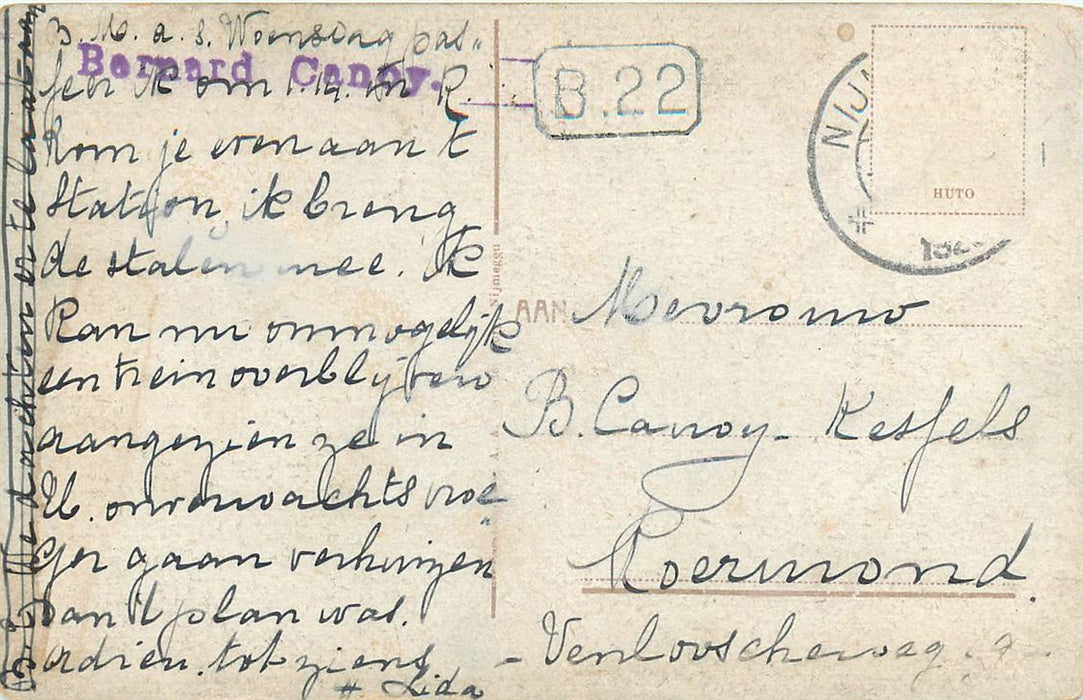 B. M. a. s. Woensdag pas-
seer ik om 1.14. in R.
Kom je even aan 't
Station, ik breng
de stalen mee. Ik
kan nu onmogelijk
een trein overblijven
aangezien ze in
U. onverwachts vroe-
ger gaan verhuizen
dan 't plan was.
adieu. tot ziens
# Lida
Bernard Canoy.
B.22
NIJM
HUTO
Nijmegen
AAN Mevrouw
B. Canoy-Kessels
Roermond.
- Venlooscheweg. 9-